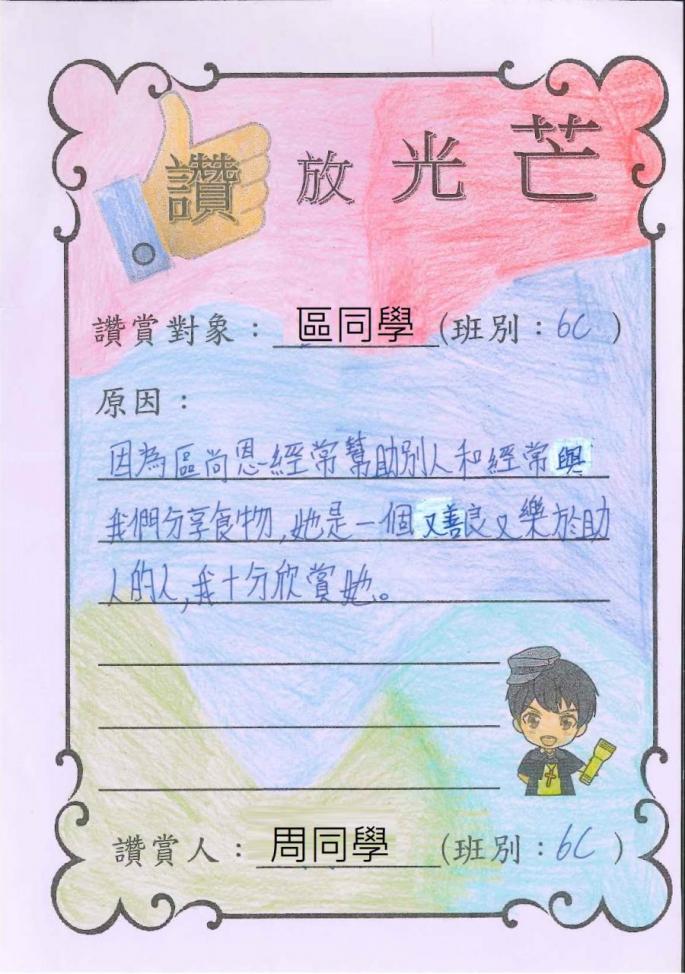 讚放光芒
讚賞對象：區同學(班別：6C)
原因：
因為區尚恩經常幫助別人和經常與
我們分享食物,她是一個又善良又樂於助
人的人,我十分欣賞她。
讚賞人：周同學(班別：6C)